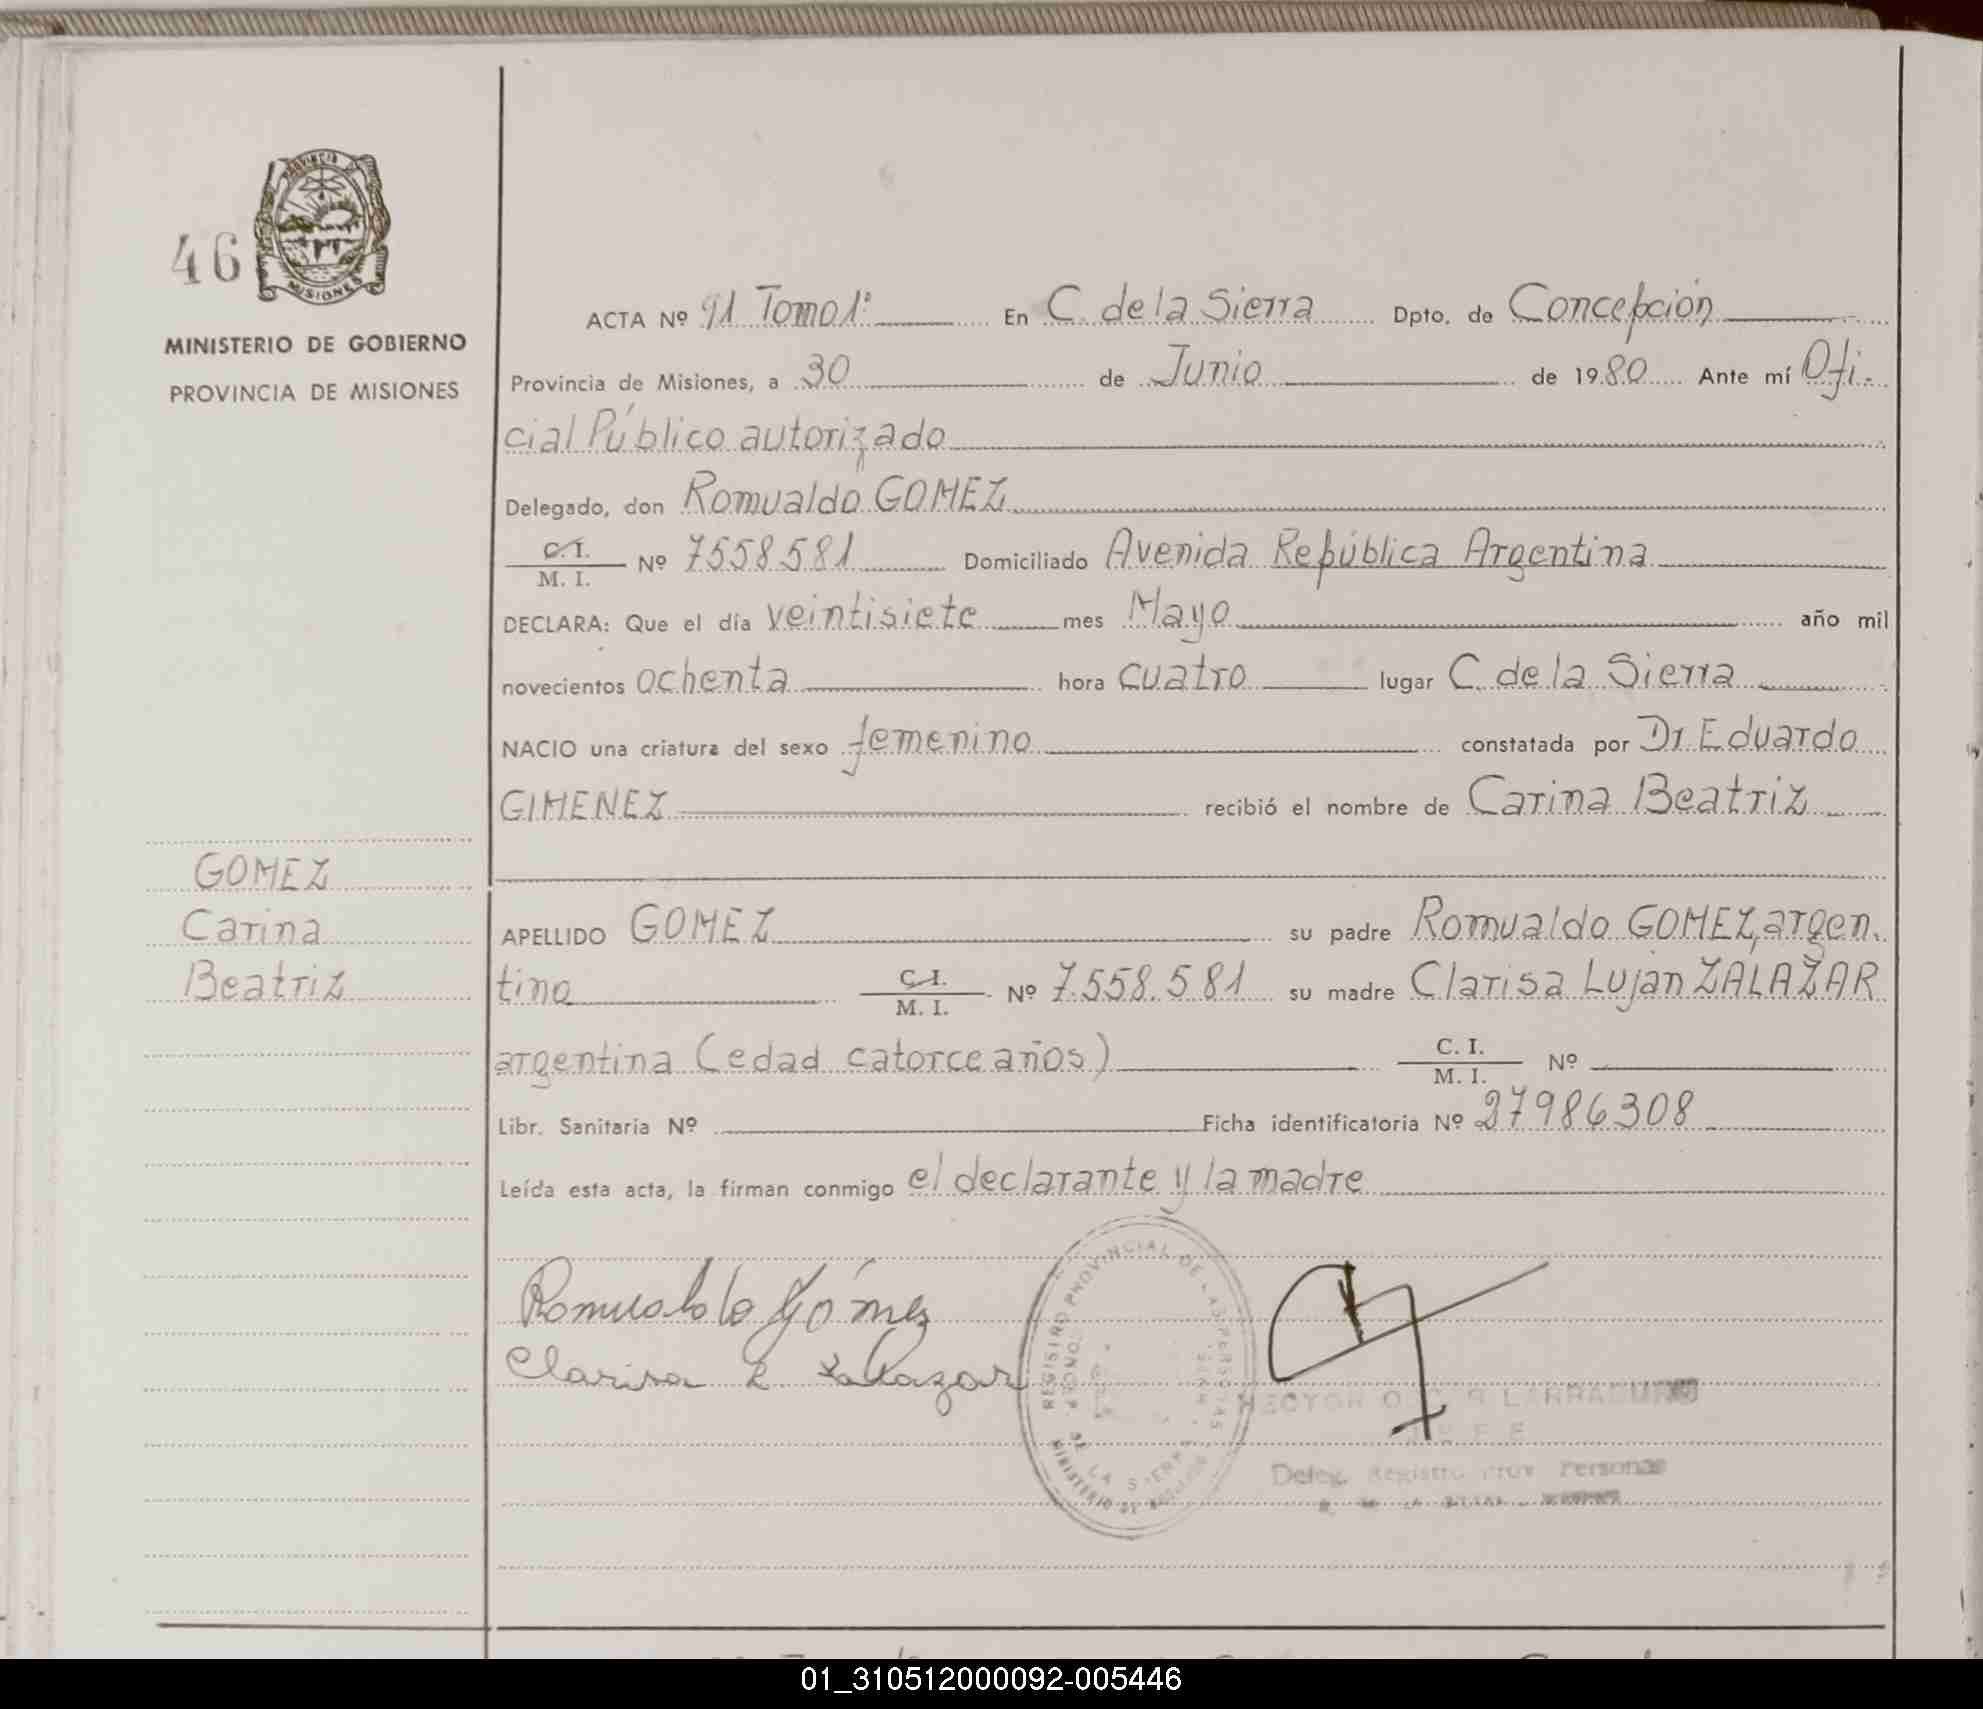 46
PROVINCIA DE
MISIONES
MINISTERIO DE GOBIERNO
PROVINCIA DE MISIONES
ACTA Nº 91 Tomo 1º En C. de la Sierra Dpto. de Concepción
Provincia de Misiones, a 30 de Junio de 1980 Ante mí Ofi-
cial Público autorizado
Delegado, don Romualdo GOMEZ
C.I. M. I. Nº 7558581 Domiciliado Avenida República Argentina
DECLARA: Que el día veintisiete mes Mayo año mil
novecientos ochenta hora cuatro lugar C. de la Sierra
NACIO una criatura del sexo femenino constatada por Dr. Eduardo
GIMENEZ recibió el nombre de Carina Beatriz
GOMEZ
Carina
Beatriz
APELLIDO GOMEZ su padre Romualdo GOMEZ, argen-
tino C.I. M. I. Nº 7.558.581 su madre Clarisa Lujan ZALAZAR
argentina (edad catorce años) C. I. M. I. Nº
Libr. Sanitaria Nº Ficha identificatoria Nº 27986308
Leída esta acta, la firman conmigo el declarante y la madre
Romualdo Gómez
Clarisa L Zalazar
REGISTRO PROVINCIAL DE LAS PERSONAS
DE LA SIERRA
MINISTERIO DE
HECTOR OSCAR LARRABURU
JEFE
Deleg. Registro Prov. Personas
01_310512000092-005446